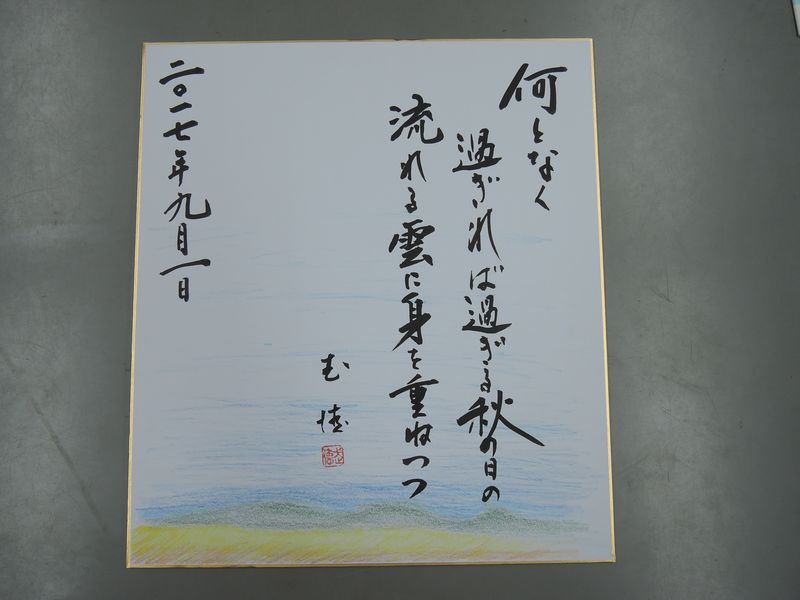 何となく
過ぎれば過ぎる秋の日の
流れる雲に身を重ねつつ
二〇一七年九月一日